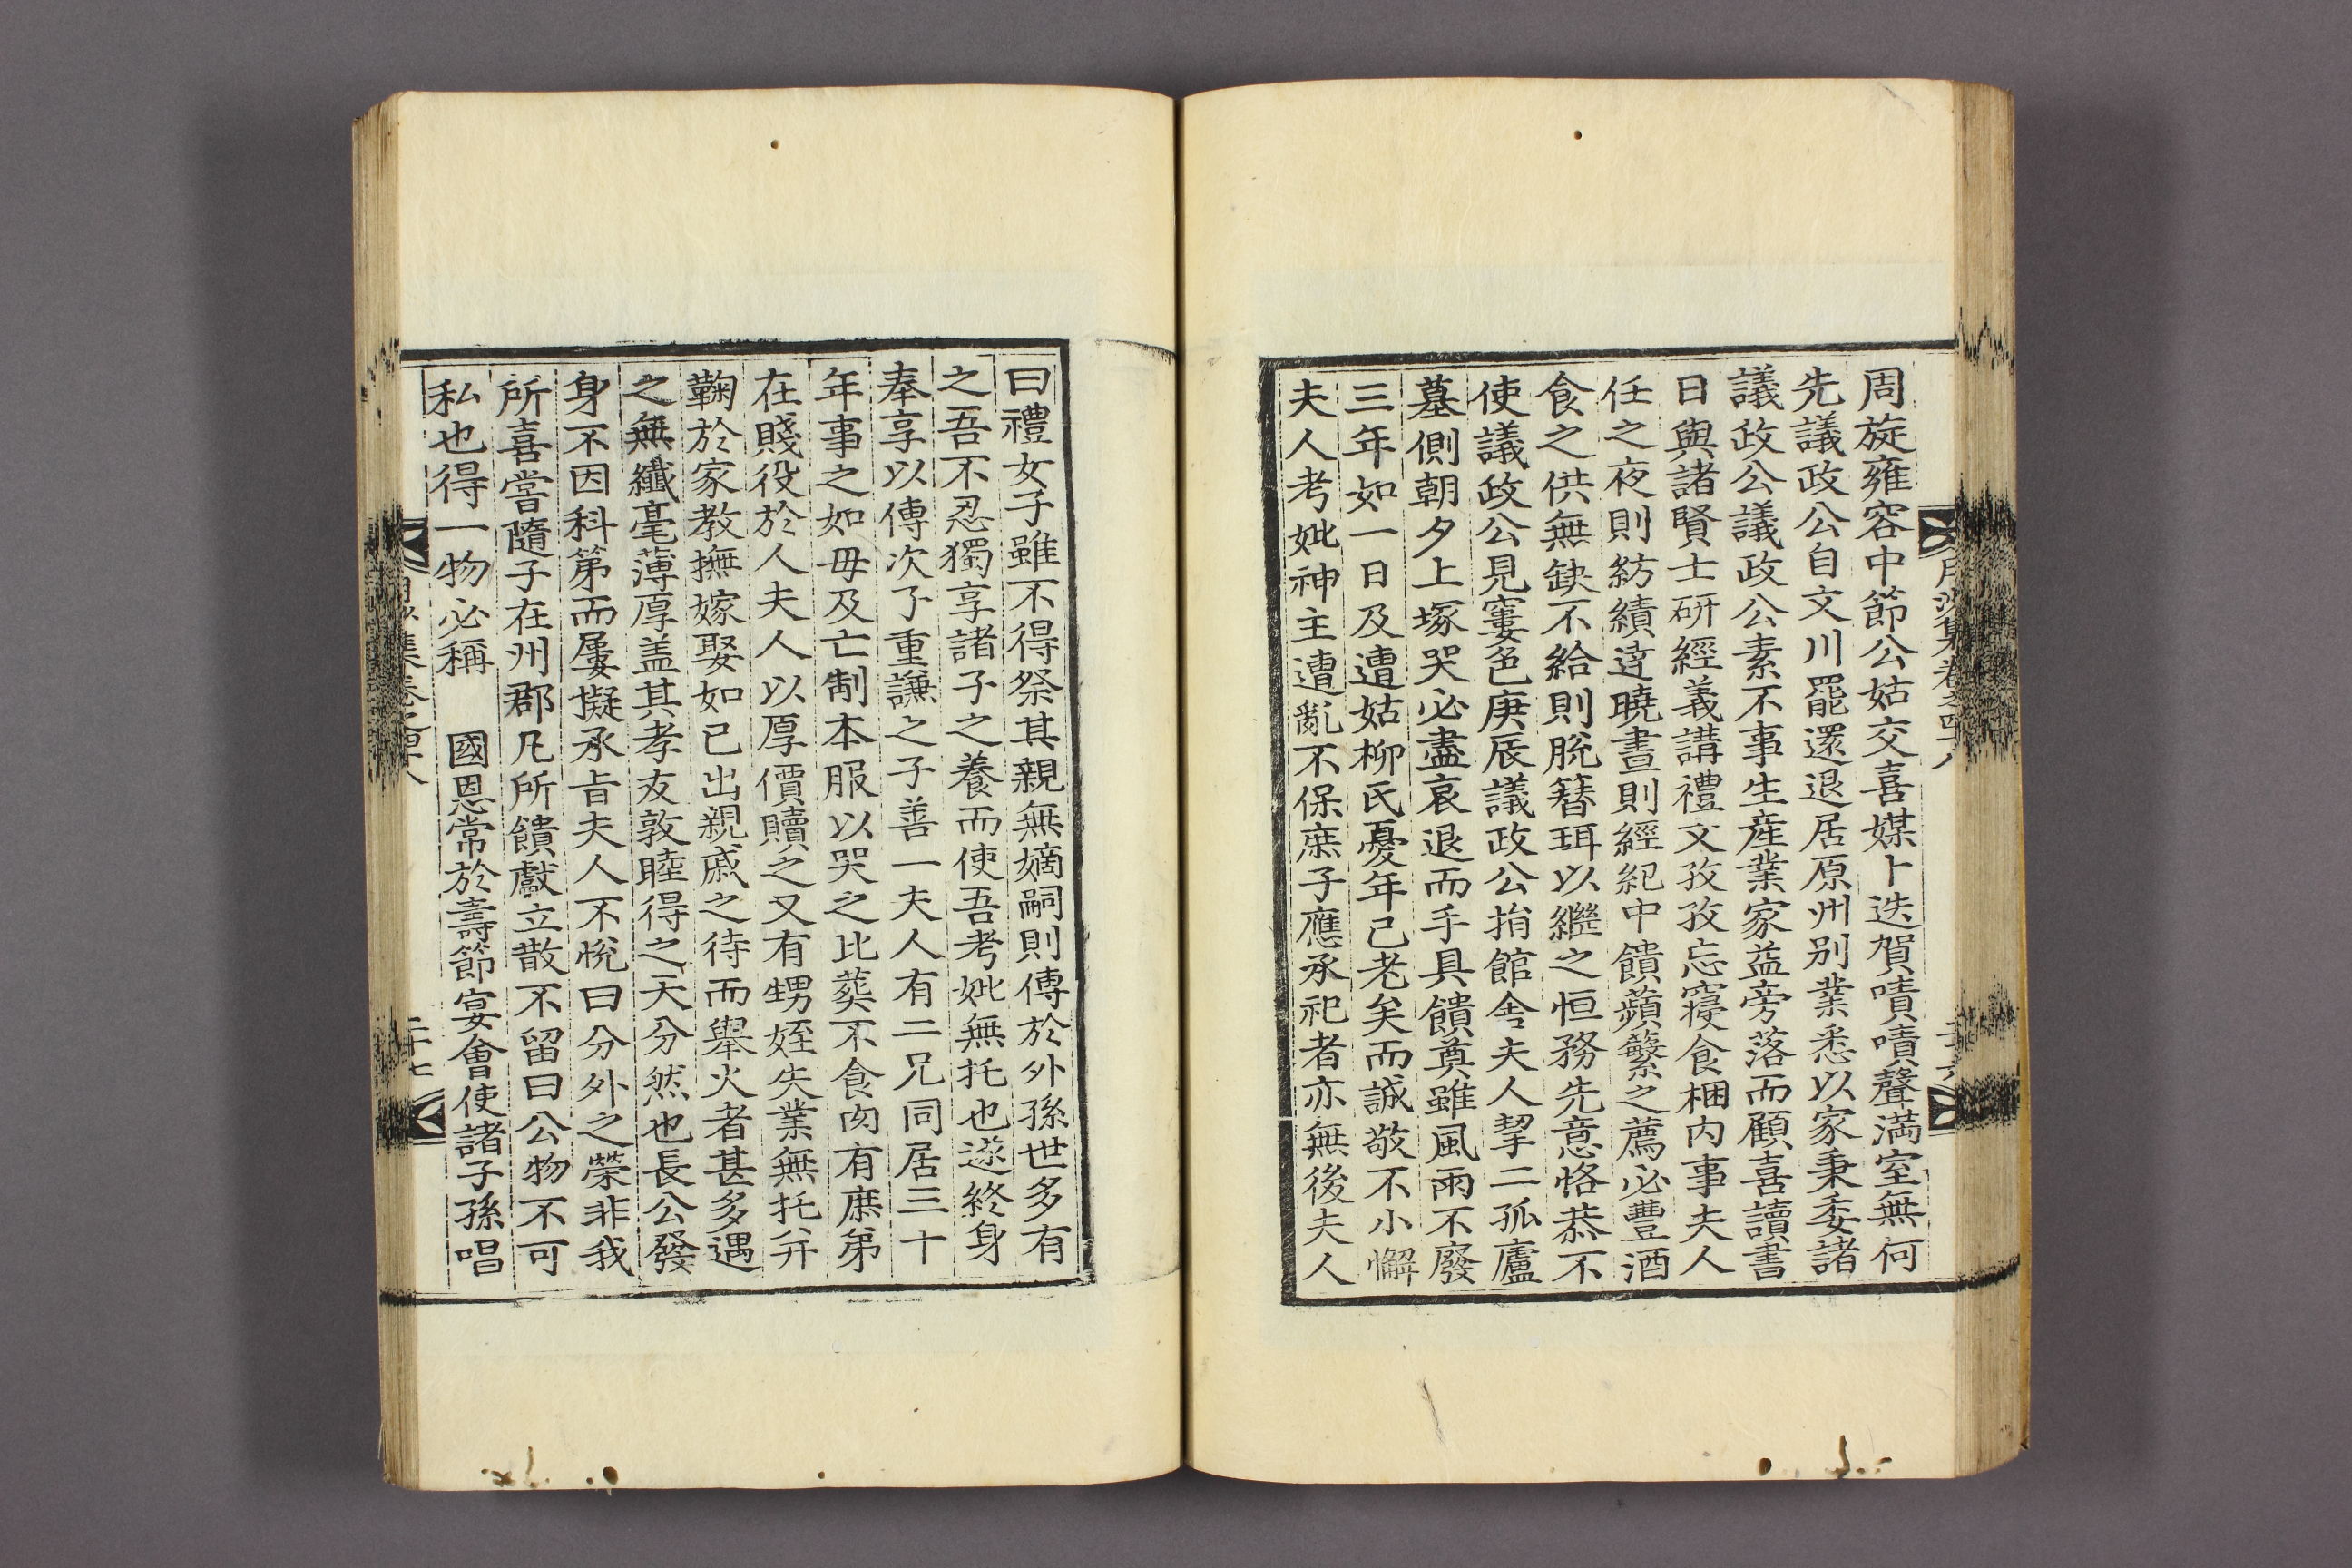 周旋雍容中節公姑交喜媒卜迭賀嘖嘖聲滿室無何
先議政公自文川罷還退居原州別業悉以家秉委諸
議政公議政公素不事生産業家益旁落而顧喜讀書
日與諸賢士硏經義講禮文孜孜忘寢食梱内事夫人
任之夜則紡績達曉晝則經紀中饋蘋蘩之薦必豐酒
食之供無缺不給則脫簪珥以繼之恒務先意恪恭不
使議政公見窶色庚辰議政公捐館舍夫人挈二孤廬
墓側朝夕上塚哭必盡哀退而手具饋奠雖風雨不廢
三年如一日及遭姑柳氏憂年已老矣而誠敬不小懈
夫人考妣神主遭亂不保庶子應承祀者亦無後夫人
曰禮女子雖不得祭其親無嫡嗣則傳於外孫世多有
之吾不忍獨享諸子之養而使吾考妣無托也遂終身
奉享以傳次子重謙之子善一夫人有二兄同居三十
年事之如母及亡制本服以哭之比葬不食肉有庶弟
在賤役於人夫人以厚價贖之又有甥姪失業無托幷
鞠於家教撫嫁娶如已出親戚之待而擧火者甚多遇
之無纖毫薄厚盖其孝友敦睦得之天分然也長公發
身不因科第而屢擬承旨夫人不悅曰分外之榮非我
所喜嘗隨子在州郡凡所饋獻立散不留曰公物不可
私也得一物必稱　國恩常於壽節宴會使諸子孫唱